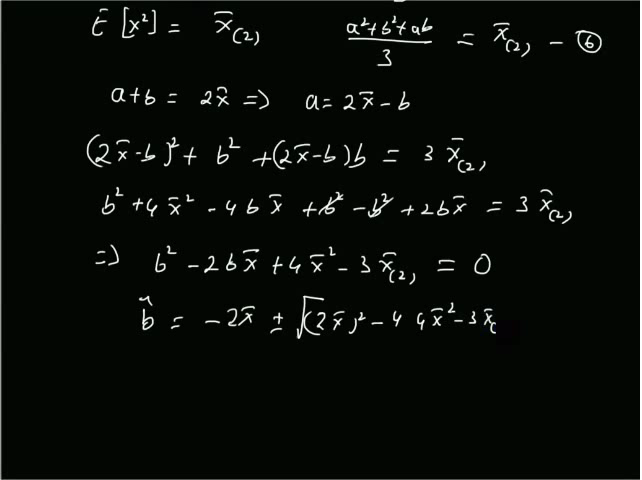 E [x²] = x̄₍₂₎   (a²+b²+ab)/3 = x̄₍₂₎ – ⑥
a+b = 2x̄ => a = 2x̄ – b
(2x̄-b)² + b² + (2x̄-b)b = 3 x̄₍₂₎
b² + 4x̄² - 4bx̄ + b² - b² + 2bx̄ = 3 x̄₍₂₎
=> b² - 2bx̄ + 4x̄² - 3x̄₍₂₎ = 0
b̂ = - 2x̄ ± √(2x̄)² - 4 4x̄² - 3x̄₍